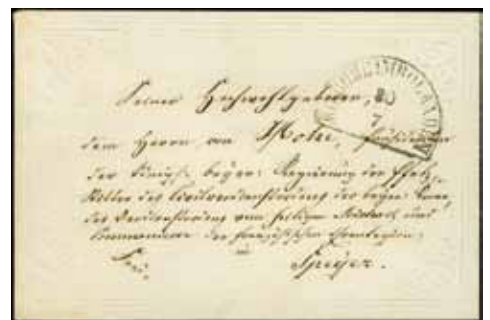 Seiner Hochwohlgeboren,
KIRCHHEIMBOLANDEN
20
7
dem Herrn von Hohe, Präsidenten
der Königl. bayer: Regierung der Pfalz,
Ritter des Civilverdienstordens der bayer: Krone,
des Verdienstordens vom heiligen Michael und
Commandeur der französischen Ehrenlegion.
in
Speyer.